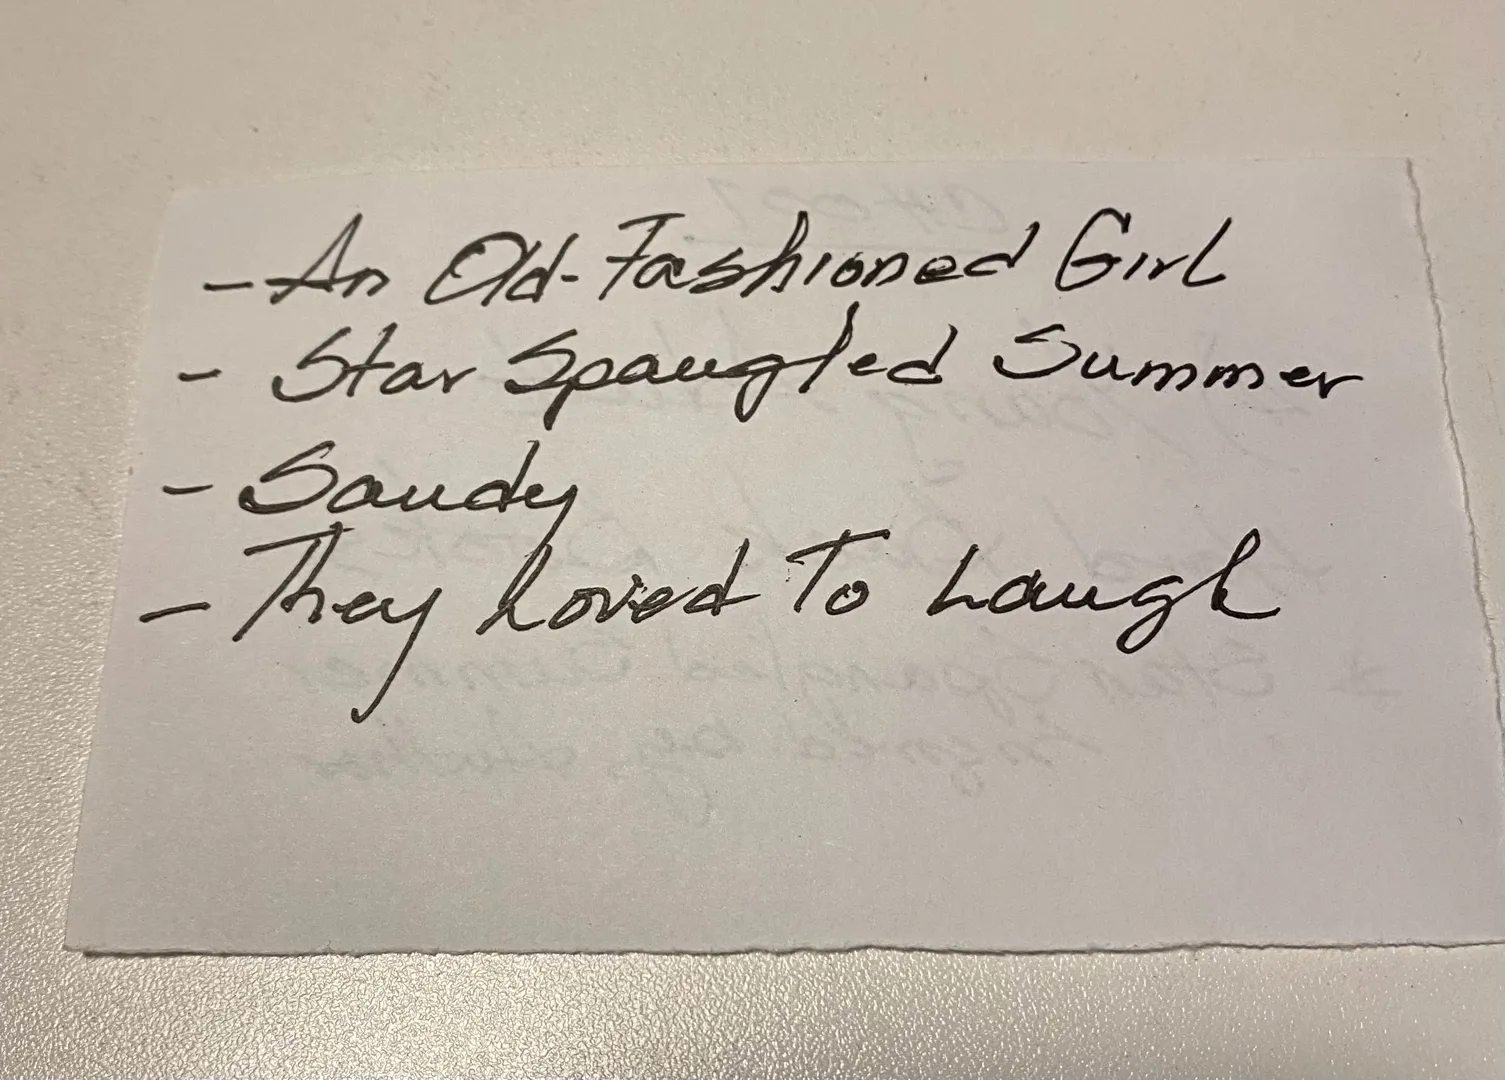 - An Old-Fashioned Girl
- Star Spangled Summer
- Sandy
- They Loved To Laugh